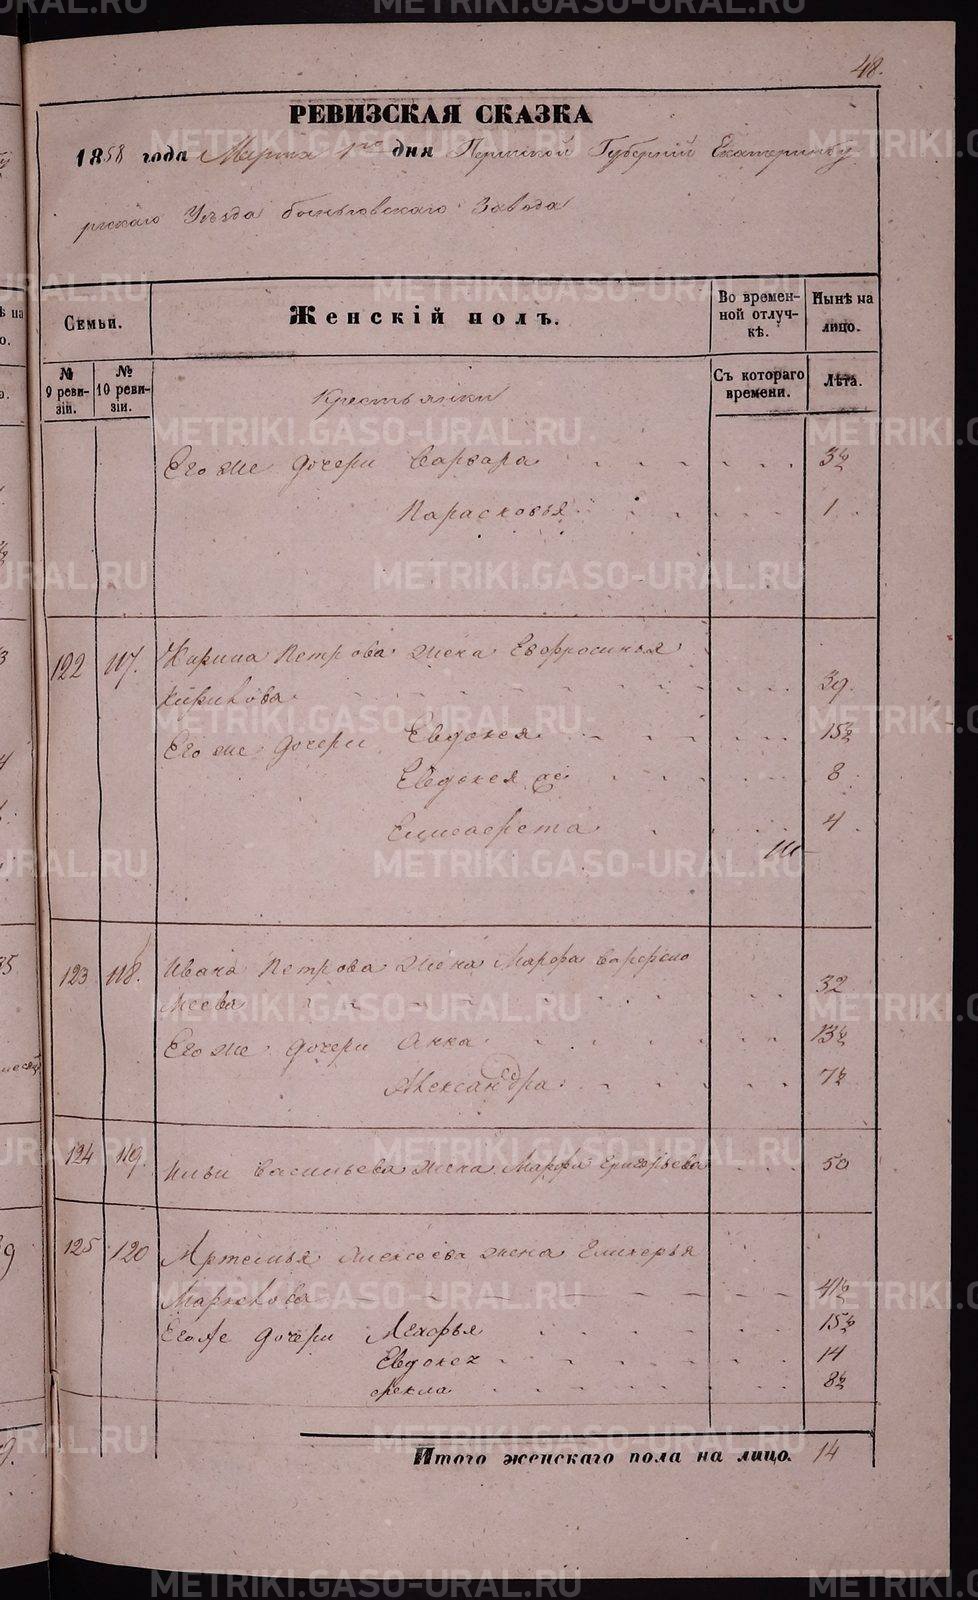 48.
РЕВИЗСКАЯ СКАЗКА
1858 года Марта 1го дня Пермской Губерній Екатеринбу
ргскаго Уезда Быньговскаго Завода
Семьи.
Женскій полъ.
Во времен-
ной отлуч-
кѣ.
Нынѣ на
лицо.
№
9 реви-
зіи.
№
10 реви-
зіи.
Съ котораго
времени.
Лѣта.
Крестьянки
Его же дочери Варвара 3½
Парасковья 1
122 117. Кирила Петрова жена Евфросинья
Кирикова 39.
Его же дочери Евдокея 15½
Евдокея 8
Елисаерета 4
123 118. Ивана Петрова жена Марфа Варфоло
меева 32
Его же дочери Анна 13½
Александра 7½
124 119. Ильи Васильева жена Марфа Григорьева 50
125 120 Артемья Алексеева жена Гликерья
Маркелова 41½
Его же дочери Лукерья 15½
Евдокея 14
Фекла 8½
Итого женскаго пола на лицо. 14
METRIKI.GASO-URAL.RU